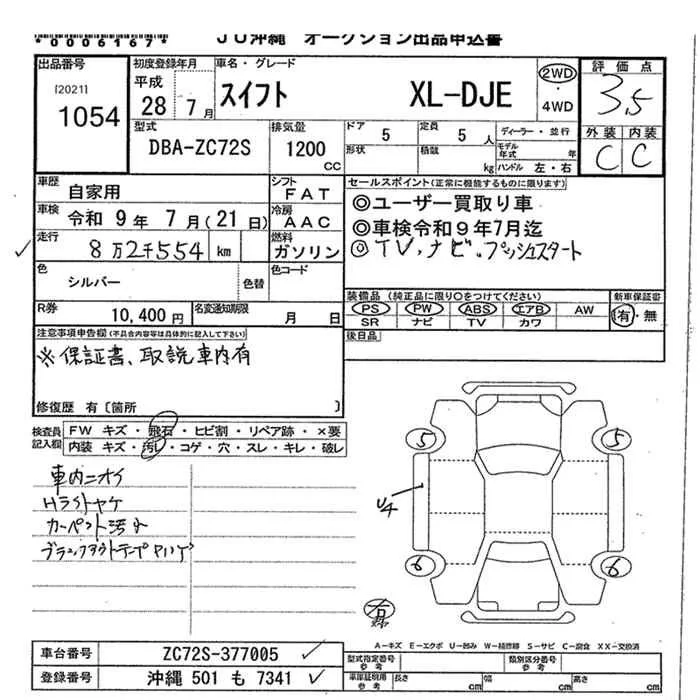 *0006167*
JU沖縄 オークション出品申込書
出品番号
[2021]
1054
初度登録年月
平成
28 7月
車名・グレード
スイフト XL-DJE
2WD
・
4WD
評価点
3.5
外装 内装
C C
型式
DBA-ZC72S
排気量
1200
CC
ドア 5
定員 5人
形状
積載 kg
ディーラー・並行
モデル年式 年
ハンドル 左・右
車歴
自家用
シフト
FAT
車検
令和 9年 7月(21日)
冷房
AAC
走行
8万2千554 km
燃料
ガソリン
色
シルバー
色替
色コード
R券
10,400円
名変通知期限
月 日
セールスポイント(正常に機能するものに限ります)
◎ユーザー買取り車
◎車検令和9年7月迄
◎TV、ナビ、プッシュスタート
装備品 (純正品に限り○をつけてください)
PS PW ABS エアB AW
SR ナビ TV カワ
新車保証書
有・無
後日品
注意事項申告欄(不具合内容等は具体的に記入して下さい)
※保証書、取説車内有
修復歴 有〔箇所 〕
検査員記入欄
FW キズ・飛石・ヒビ割・リペア跡・×要
内装 キズ・汚レ・コゲ・穴・スレ・キレ・破レ
車内ニオイ
Hライトヤケ
カーペット汚れ
ブラックアウトテープハゲ
5 5
U4
6 6
A-キズ E-エクボ U-凹み W-補修跡 S-サビ C-腐食 XX-交換済
車台番号
ZC72S-377005
登録番号
沖縄 501 も 7341
型式指定番号
参考
類別区分番号
参考
車庫証明用
参考
長さ cm
幅 cm
高さ cm